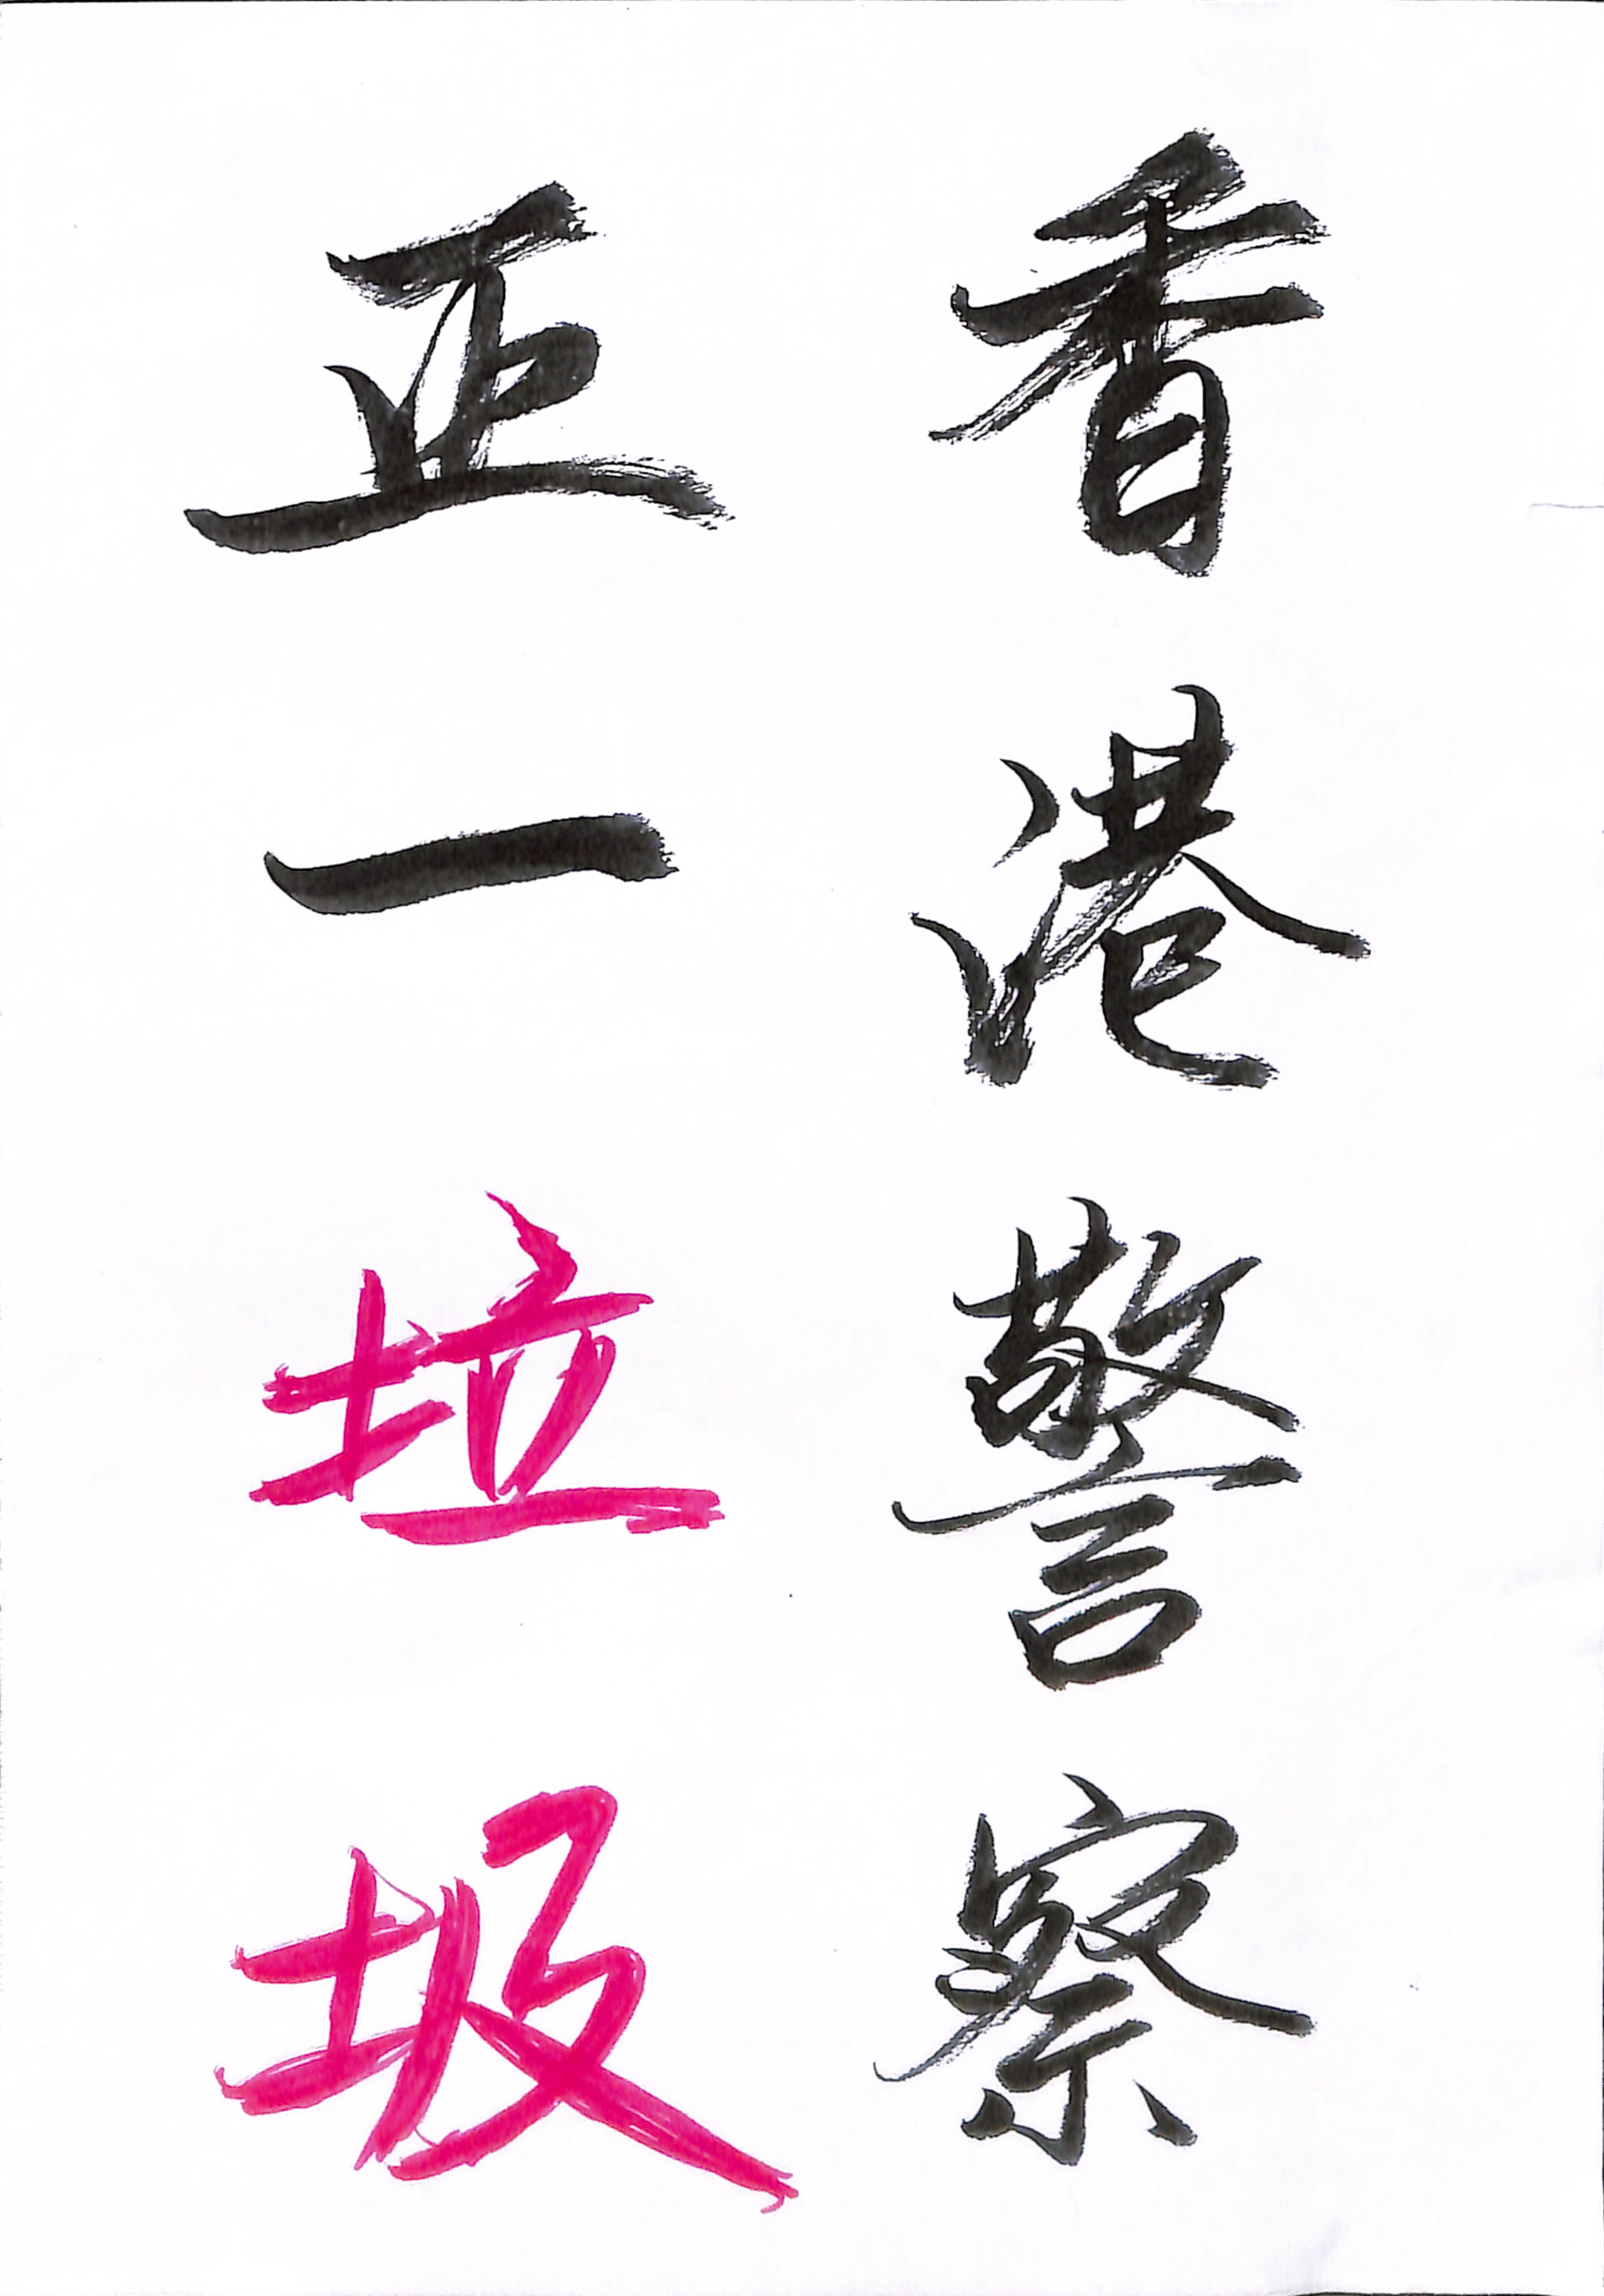 香港警察
正一垃圾